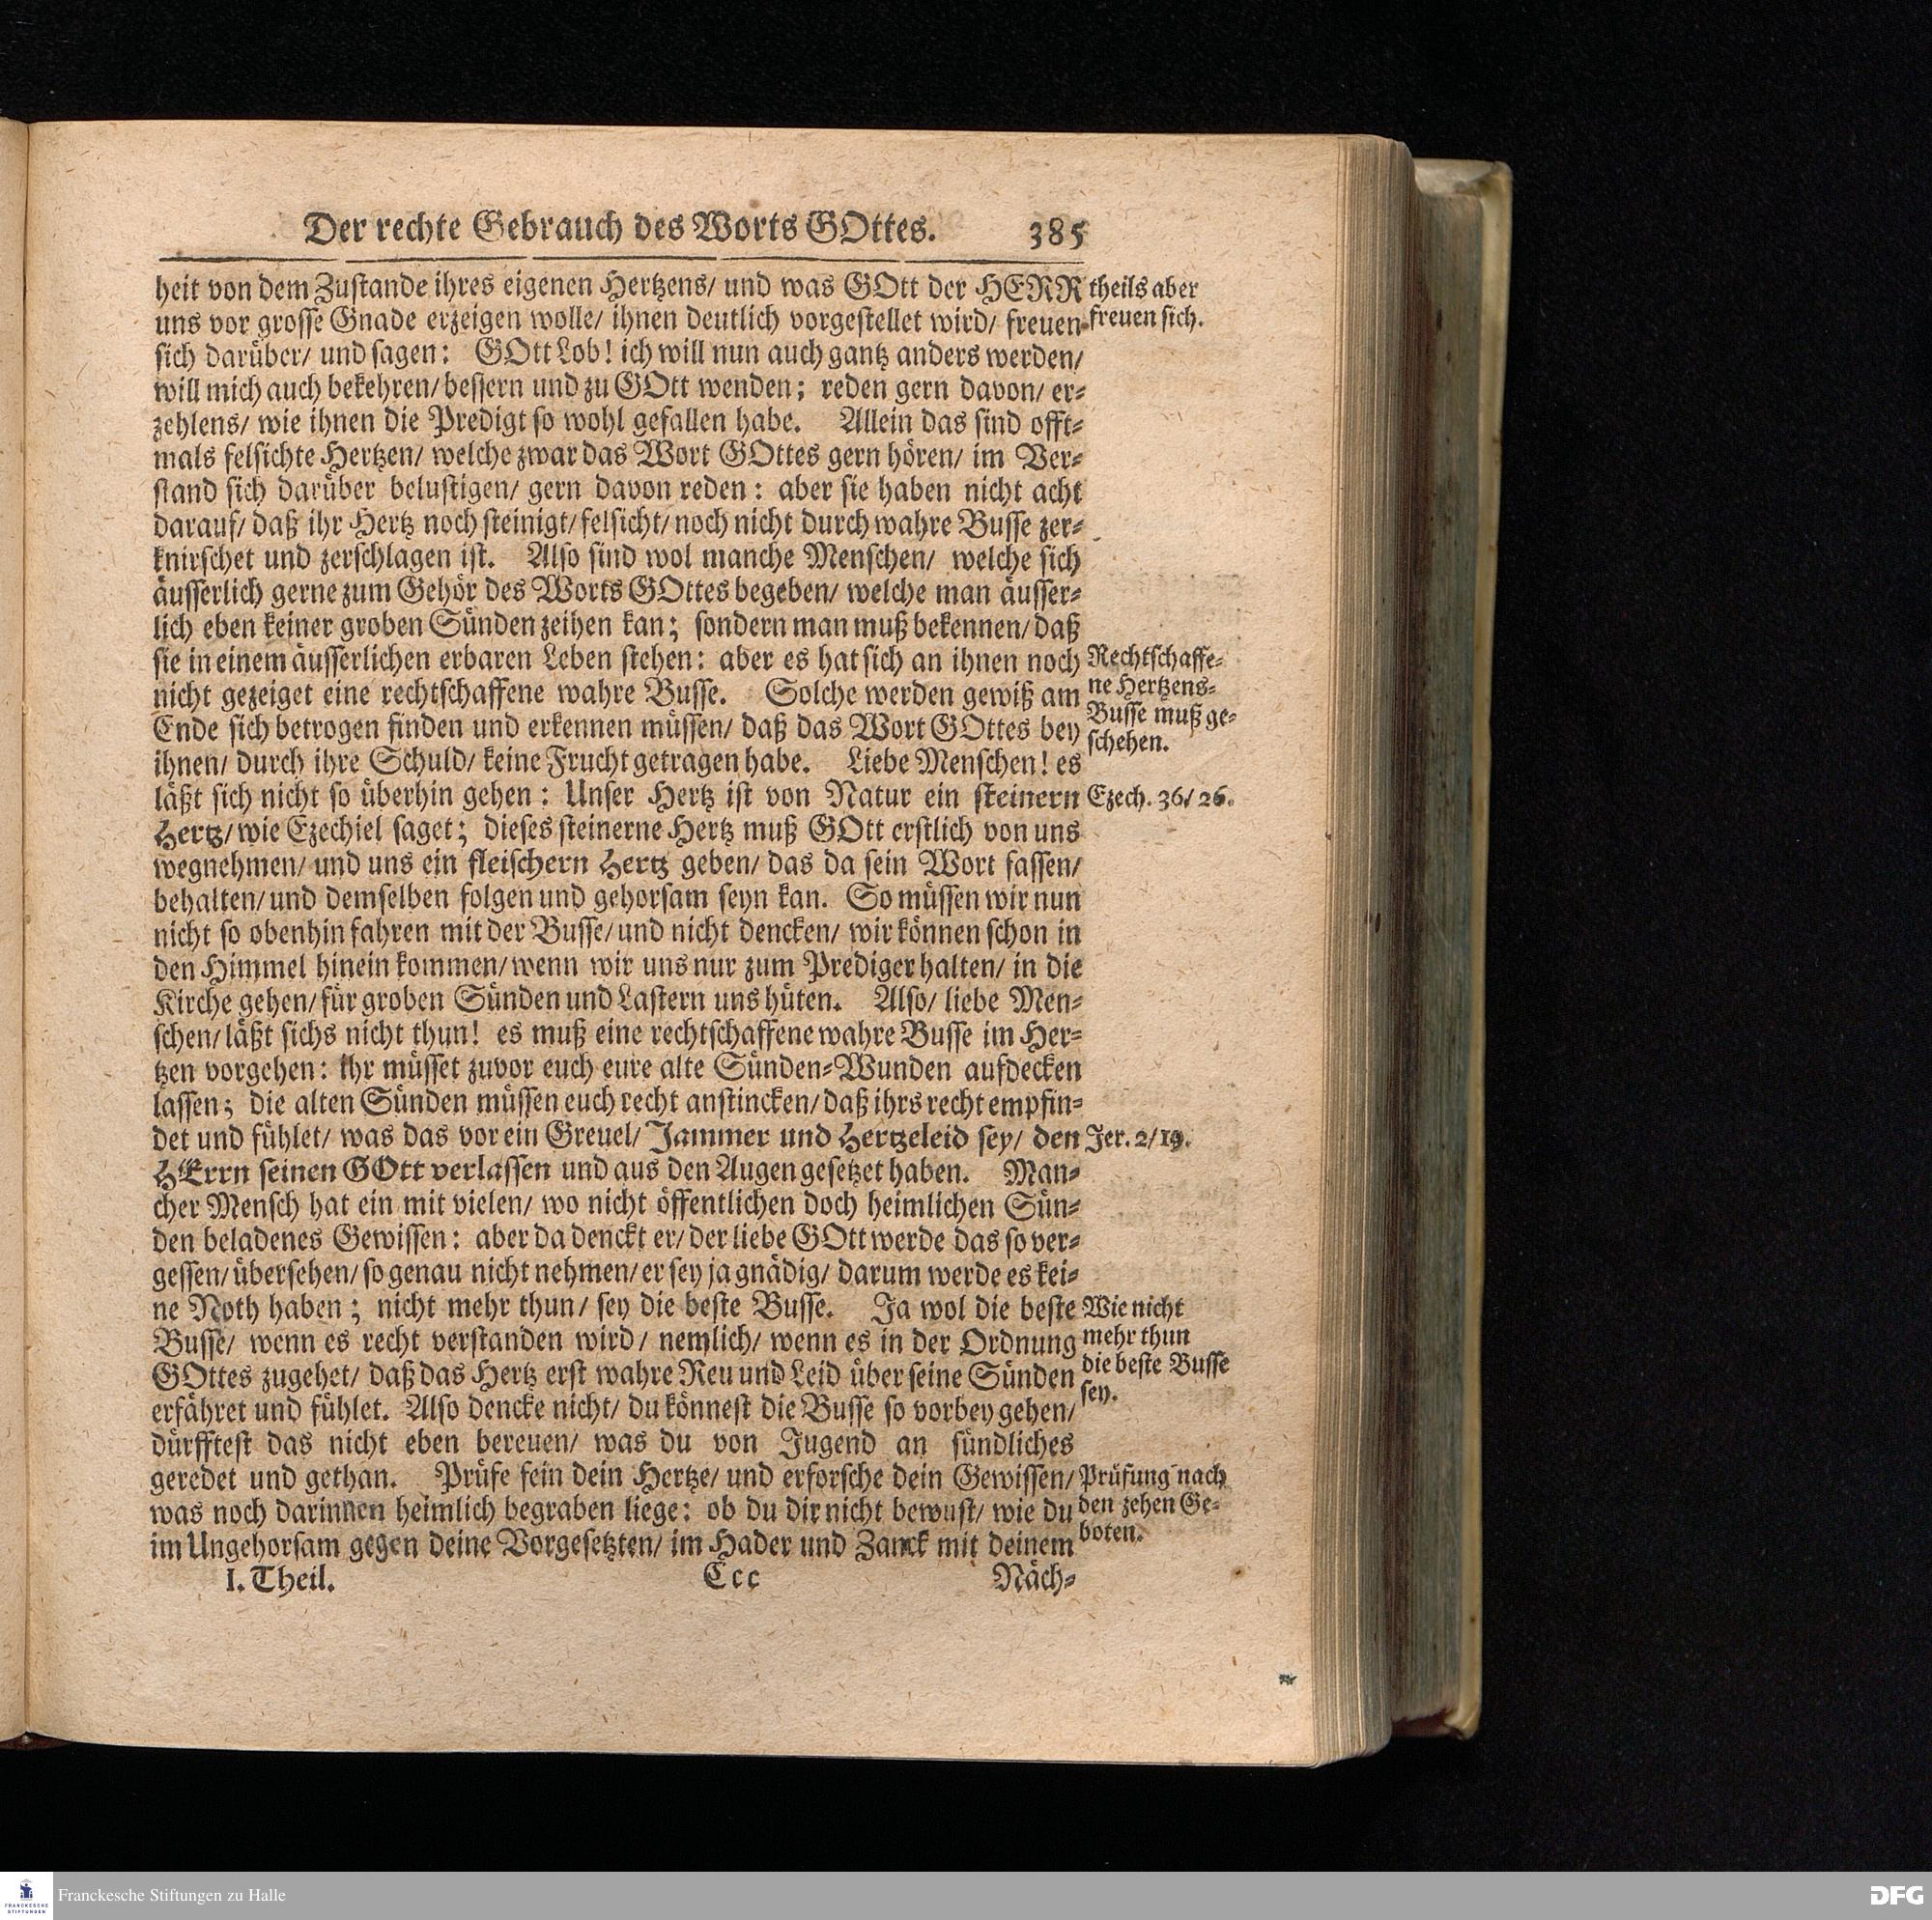 Der rechte Gebrauch des Worts GOttes. 385
heit von dem Zustande ihres eigenen Hertzens/ und was GOtt der HERR
uns vor grosse Gnade erzeigen wolle/ ihnen deutlich vorgestellet wird/ freuen
sich darüber/ und sagen: GOtt Lob! ich will nun auch gantz anders werden/
will mich auch bekehren/ bessern und zu GOtt wenden; reden gern davon/ er-
zehlens/ wie ihnen die Predigt so wohl gefallen habe. Allein das sind offt-
mals felsichte Hertzen/ welche zwar das Wort GOttes gern hören/ im Ver-
stand sich darüber belustigen/ gern davon reden: aber sie haben nicht acht
darauf/ daß ihr Hertz noch steinigt/ felsicht/ noch nicht durch wahre Busse zer-
knirschet und zerschlagen ist. Also sind wol manche Menschen/ welche sich
äusserlich gerne zum Gehör des Worts GOttes begeben/ welche man äusser-
lich eben keiner groben Sünden zeihen kan; sondern man muß bekennen/ daß
sie in einem äusserlichen erbaren Leben stehen: aber es hat sich an ihnen noch
nicht gezeiget eine rechtschaffene wahre Busse. Solche werden gewiß am
Ende sich betrogen finden und erkennen müssen/ daß das Wort GOttes bey
ihnen/ durch ihre Schuld/ keine Frucht getragen habe. Liebe Menschen! es
läßt sich nicht so überhin gehen: Unser Hertz ist von Natur ein steinern
Hertz/ wie Ezechiel saget; dieses steinerne Hertz muß GOtt erstlich von uns
wegnehmen/ und uns ein fleischern Hertz geben/ das da sein Wort fassen/
behalten/ und demselben folgen und gehorsam seyn kan. So müssen wir nun
nicht so obenhin fahren mit der Busse/ und nicht dencken/ wir können schon in
den Himmel hinein kommen/ wenn wir uns nur zum Prediger halten/ in die
Kirche gehen/ für groben Sünden und Lastern uns hüten. Also/ liebe Men-
schen/ läßt sichs nicht thun! es muß eine rechtschaffene wahre Busse im Her-
tzen vorgehen: Ihr müsset zuvor euch eure alte Sünden-Wunden aufdecken
lassen; die alten Sünden müssen euch recht anstincken/ daß ihrs recht empfin-
det und fühlet/ was das vor ein Greuel/ Jammer und Hertzeleid sey/ den
HErrn seinen GOtt verlassen und aus den Augen gesetzet haben. Man-
cher Mensch hat ein mit vielen/ wo nicht öffentlichen doch heimlichen Sün-
den beladenes Gewissen: aber da denckt er/ der liebe GOtt werde das so ver-
gessen/ übersehen/ so genau nicht nehmen/ er sey ja gnädig/ darum werde es kei-
ne Noth haben; nicht mehr thun/ sey die beste Busse. Ja wol die beste
Busse/ wenn es recht verstanden wird/ nemlich/ wenn es in der Ordnung
GOttes zugehet/ daß das Hertz erst wahre Reu und Leid über seine Sünden
erfähret und fühlet. Also dencke nicht/ du könnest die Busse so vorbey gehen/
dürfftest das nicht eben bereuen/ was du von Jugend an sündliches
geredet und gethan. Prüfe fein dein Hertze/ und erforsche dein Gewissen/
was noch darinnen heimlich begraben liege: ob du dir nicht bewust/ wie du
im Ungehorsam gegen deine Vorgesetzten/ im Hader und Zanck mit deinem
I. Theil. Ccc Näch-
theils aber
freuen sich.
Rechtschaffe-
ne Hertzens-
Busse muß ge-
schehen.
Ezech. 36/ 26.
Jer. 2/ 19.
Wie nicht
mehr thun
die beste Busse
sey.
Prüfung nach
den zehen Ge-
boten.
FRANCKESCHE
STIFTUNGEN
Franckesche Stiftungen zu Halle
DFG